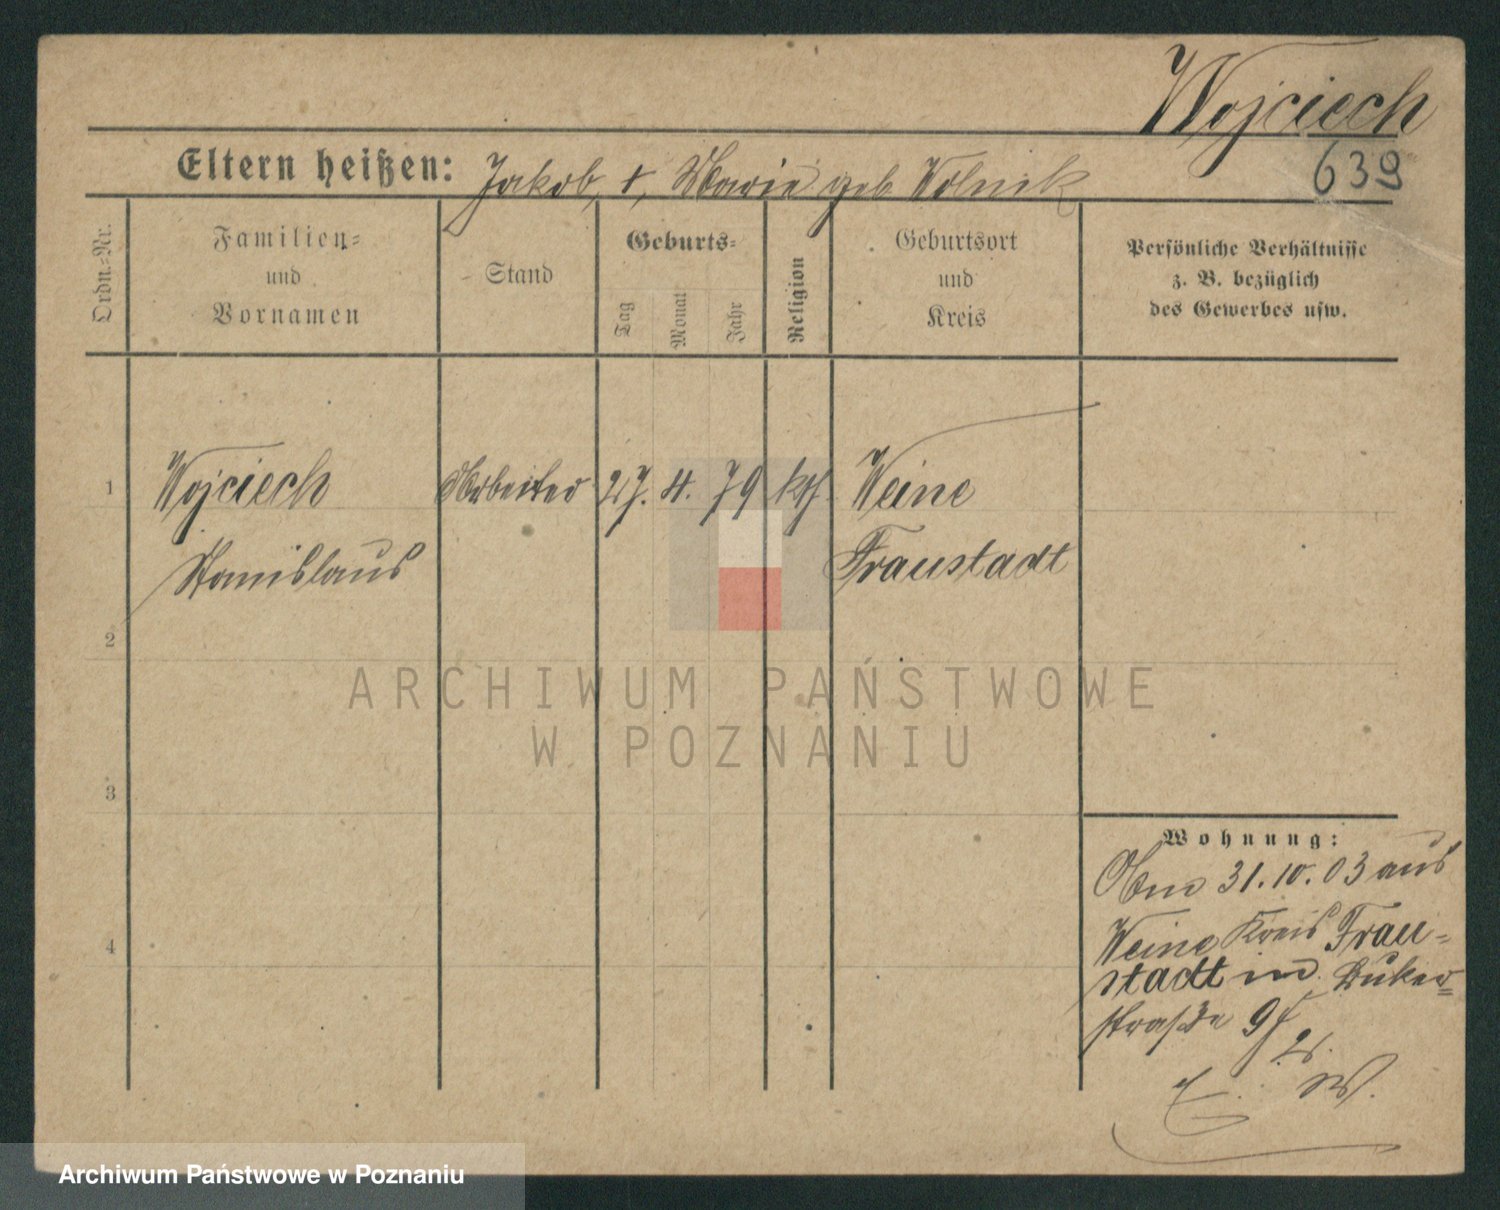 Wojciech
639
Eltern heißen: Jakob, †, Marie geb Wolnik
Ordn.-Nr.
Familien- und Vornamen
Stand
Geburts-
Tag
Monat
Jahr
Religion
Geburtsort und Kreis
Persönliche Verhältnisse
z. B. bezüglich
des Gewerbes usw.
1
Wojciech
Arbeiter
27.
4.
79
kth
Weine
Stanislaus
Fraustadt
2
ARCHIWUM PAŃSTWOWE
W POZNANIU
3
Wohnung:
31.10.03 aus
Weine Kreis Frau-
stadt in Buker-
straße 9
4
W.
Archiwum Państwowe w Poznaniu